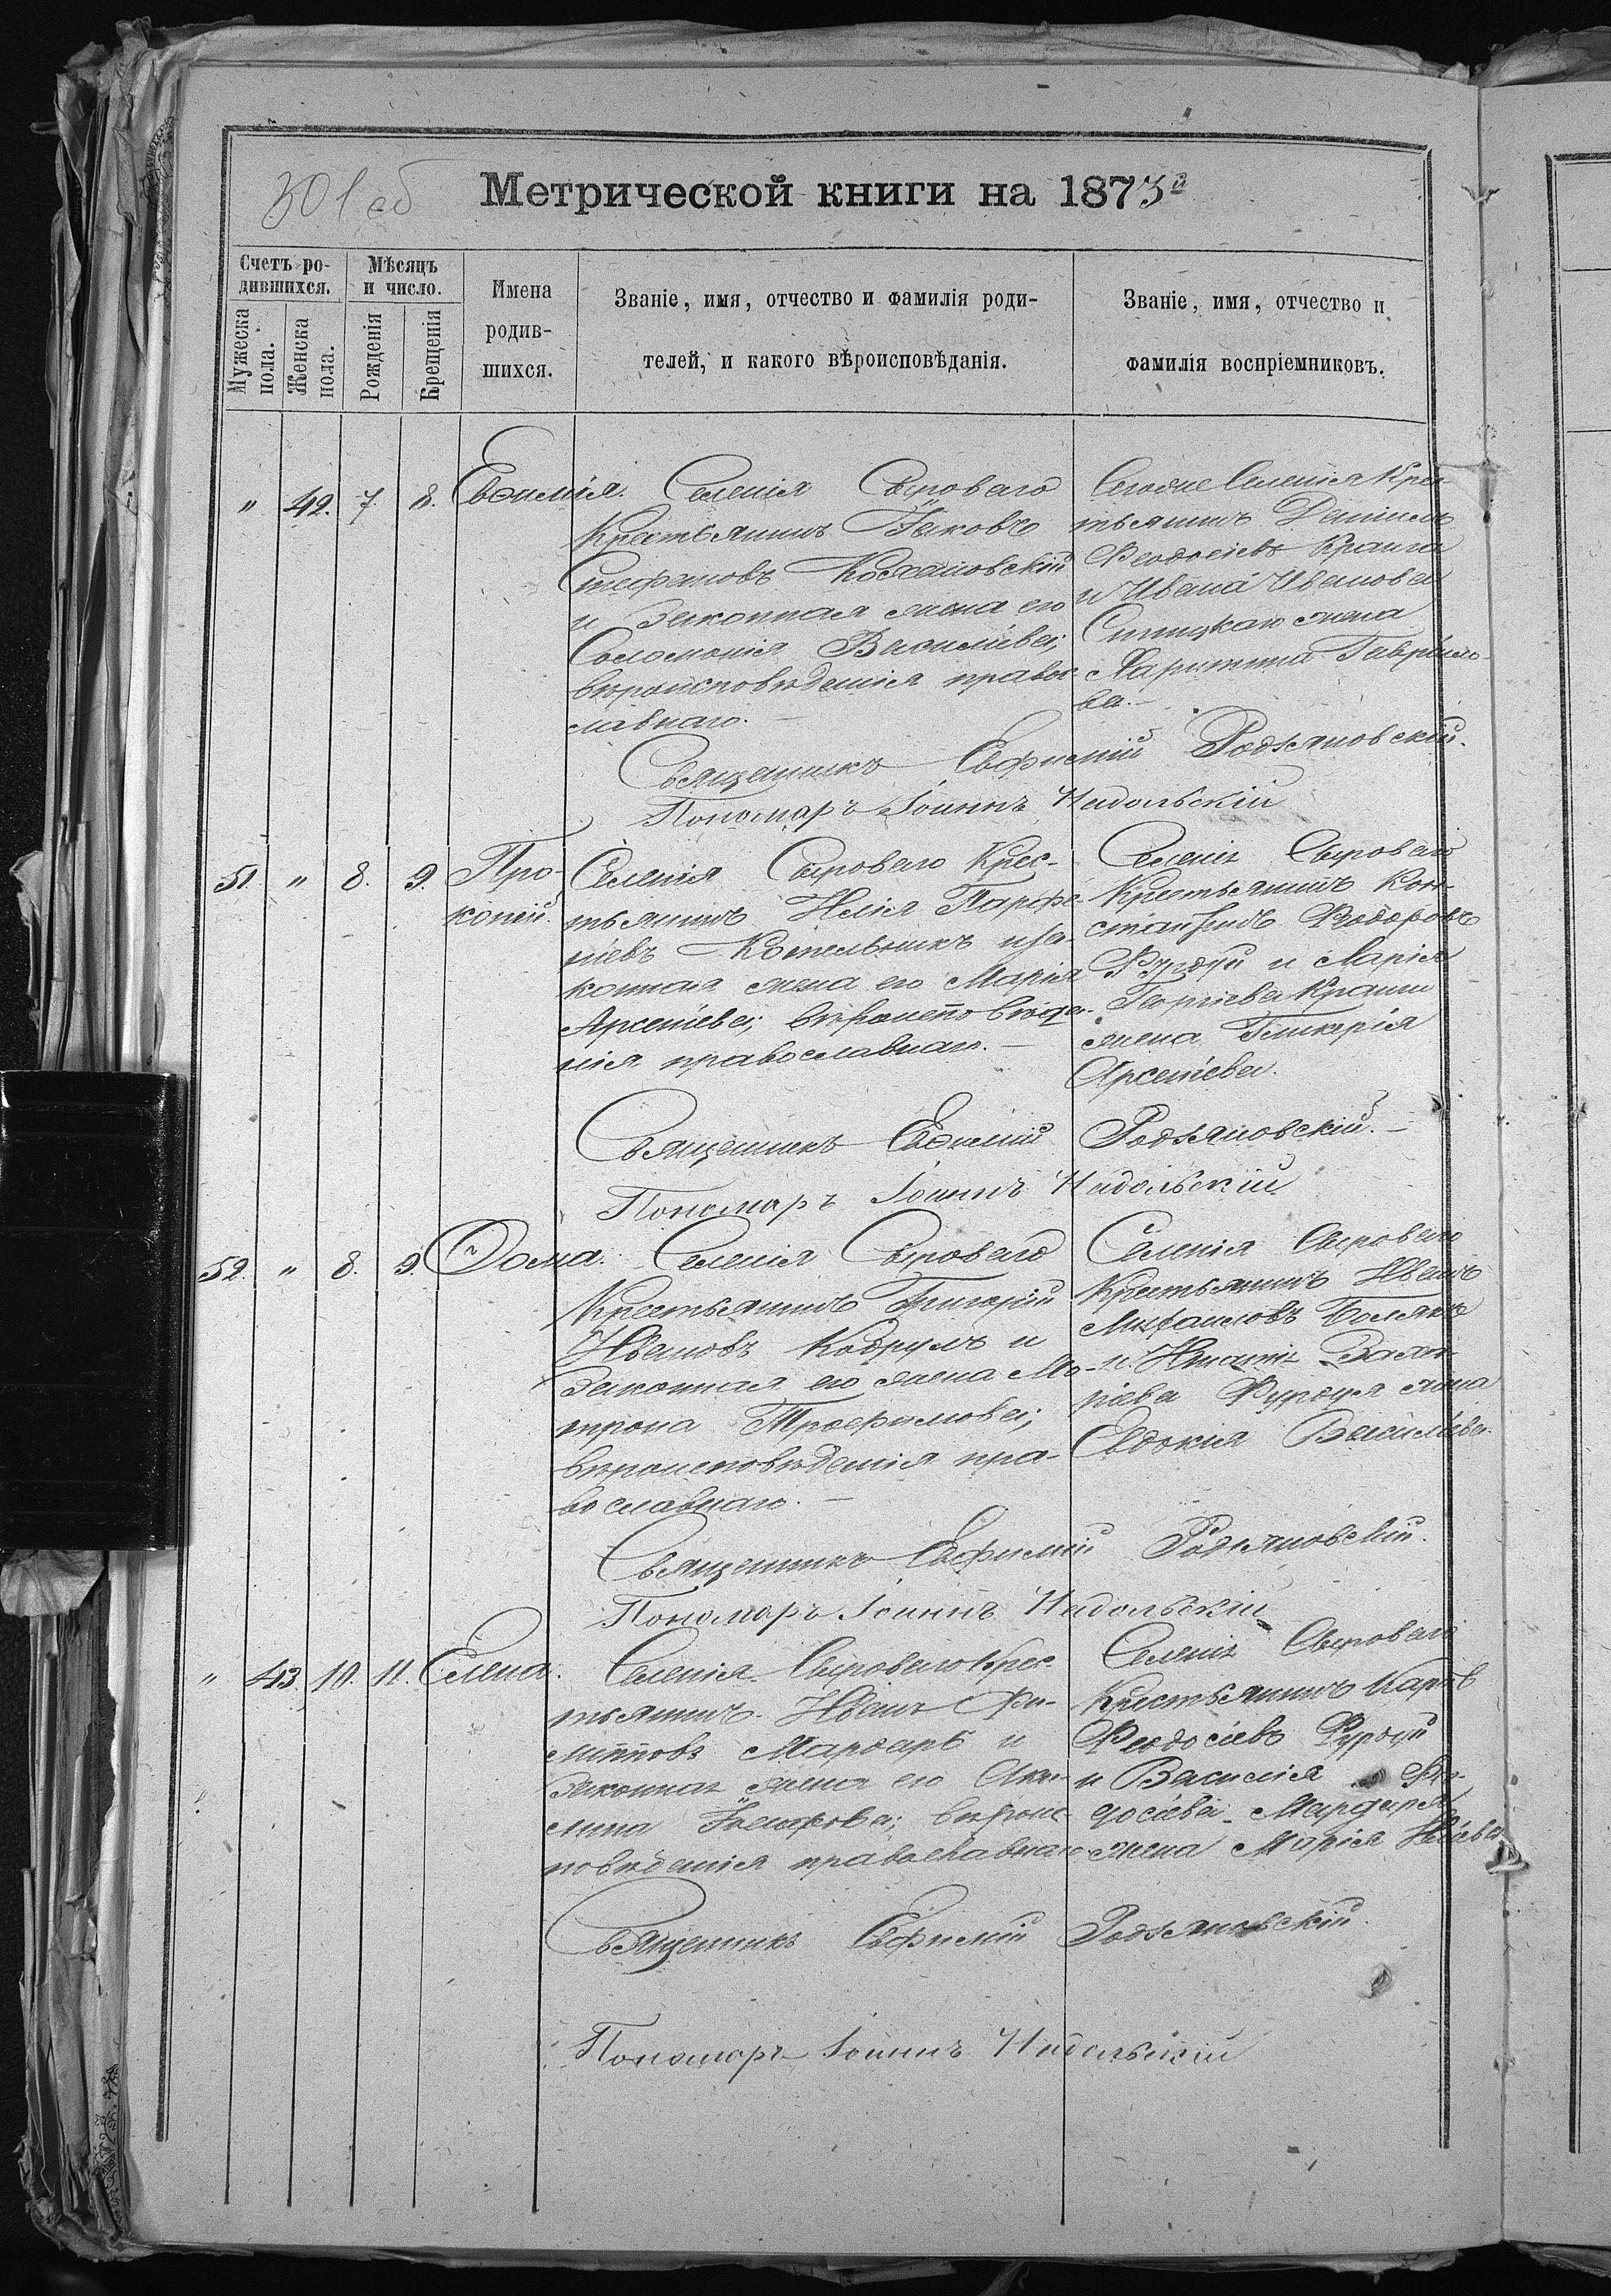 301 об
Метрической книги на 1873й
Счетъ ро-
дившихся.
Мужеска пола.
Женска пола.
Мѣсяцъ
и число.
Рожденія
Крещенія
Имена
родив-
шихся.
Званіе, имя, отчество и фамилія роди-
телей, и какого вѣроисповѣданія.
Званіе, имя, отчество и
фамилія воспріемниковъ.
" 42. 7. 8. Евѳимія.
Селенія Сыроваго
Крестьянинъ Яковъ
Стефановъ
и Законная жена его
Соломонія Василіева;
вѣроисповѣданія правос-
лавнаго. —
селенія Крес-
тьянинъ Даніилъ
Ѳеодосіевъ
и Ивана Иванова
жена
Харитина Гавріило-
ва. —
Священникъ Евфимій
Пономарь Іоаннъ Надольскій
51. " 8. 9. Про-
копій.
Селенія Сыроваго Крес-
тьянинъ Илія Парфе-
ніевъ Котельникъ и за-
конная жена его Марія
Арсеніева; вѣроисповѣда-
нія православнаго. —
Селенія Сыроваго
Крестьянинъ Кон-
стантинъ Ѳеодоровъ
и
Георгіева
жена Гликерія
Арсеніева.
Священникъ Евѳимій
Пономарь Іоаннъ Надольскій
52. " 8. 9. Ѳома.
Селенія Сыроваго
Крестьянинъ Григорій
Ивановъ и
Законная его жена Ма-
трона Трофимова;
вѣроисповѣданія пра-
вославнаго. —
Селенія Сыроваго
Крестьянинъ Иванъ
Михаиловъ
и
жена
Евдокія Василіева.
Священникъ Евфимій
Пономарь Іоаннъ Надольскій
" 43. 10. 11. Елена.
Селенія Сыроваго Крес-
тьянинъ Иванъ Фи-
липповъ Мардарь и
Законная жена его Аки-
лина; вѣроис-
повѣданія православнаго
Селенія Сыроваго
Крестьянинъ Карпъ
Ѳеодосіевъ
и Василія Ѳео-
досіева Мардаря
жена Марія
Священникъ Евфимій
Пономарь Іоаннъ Надольскій